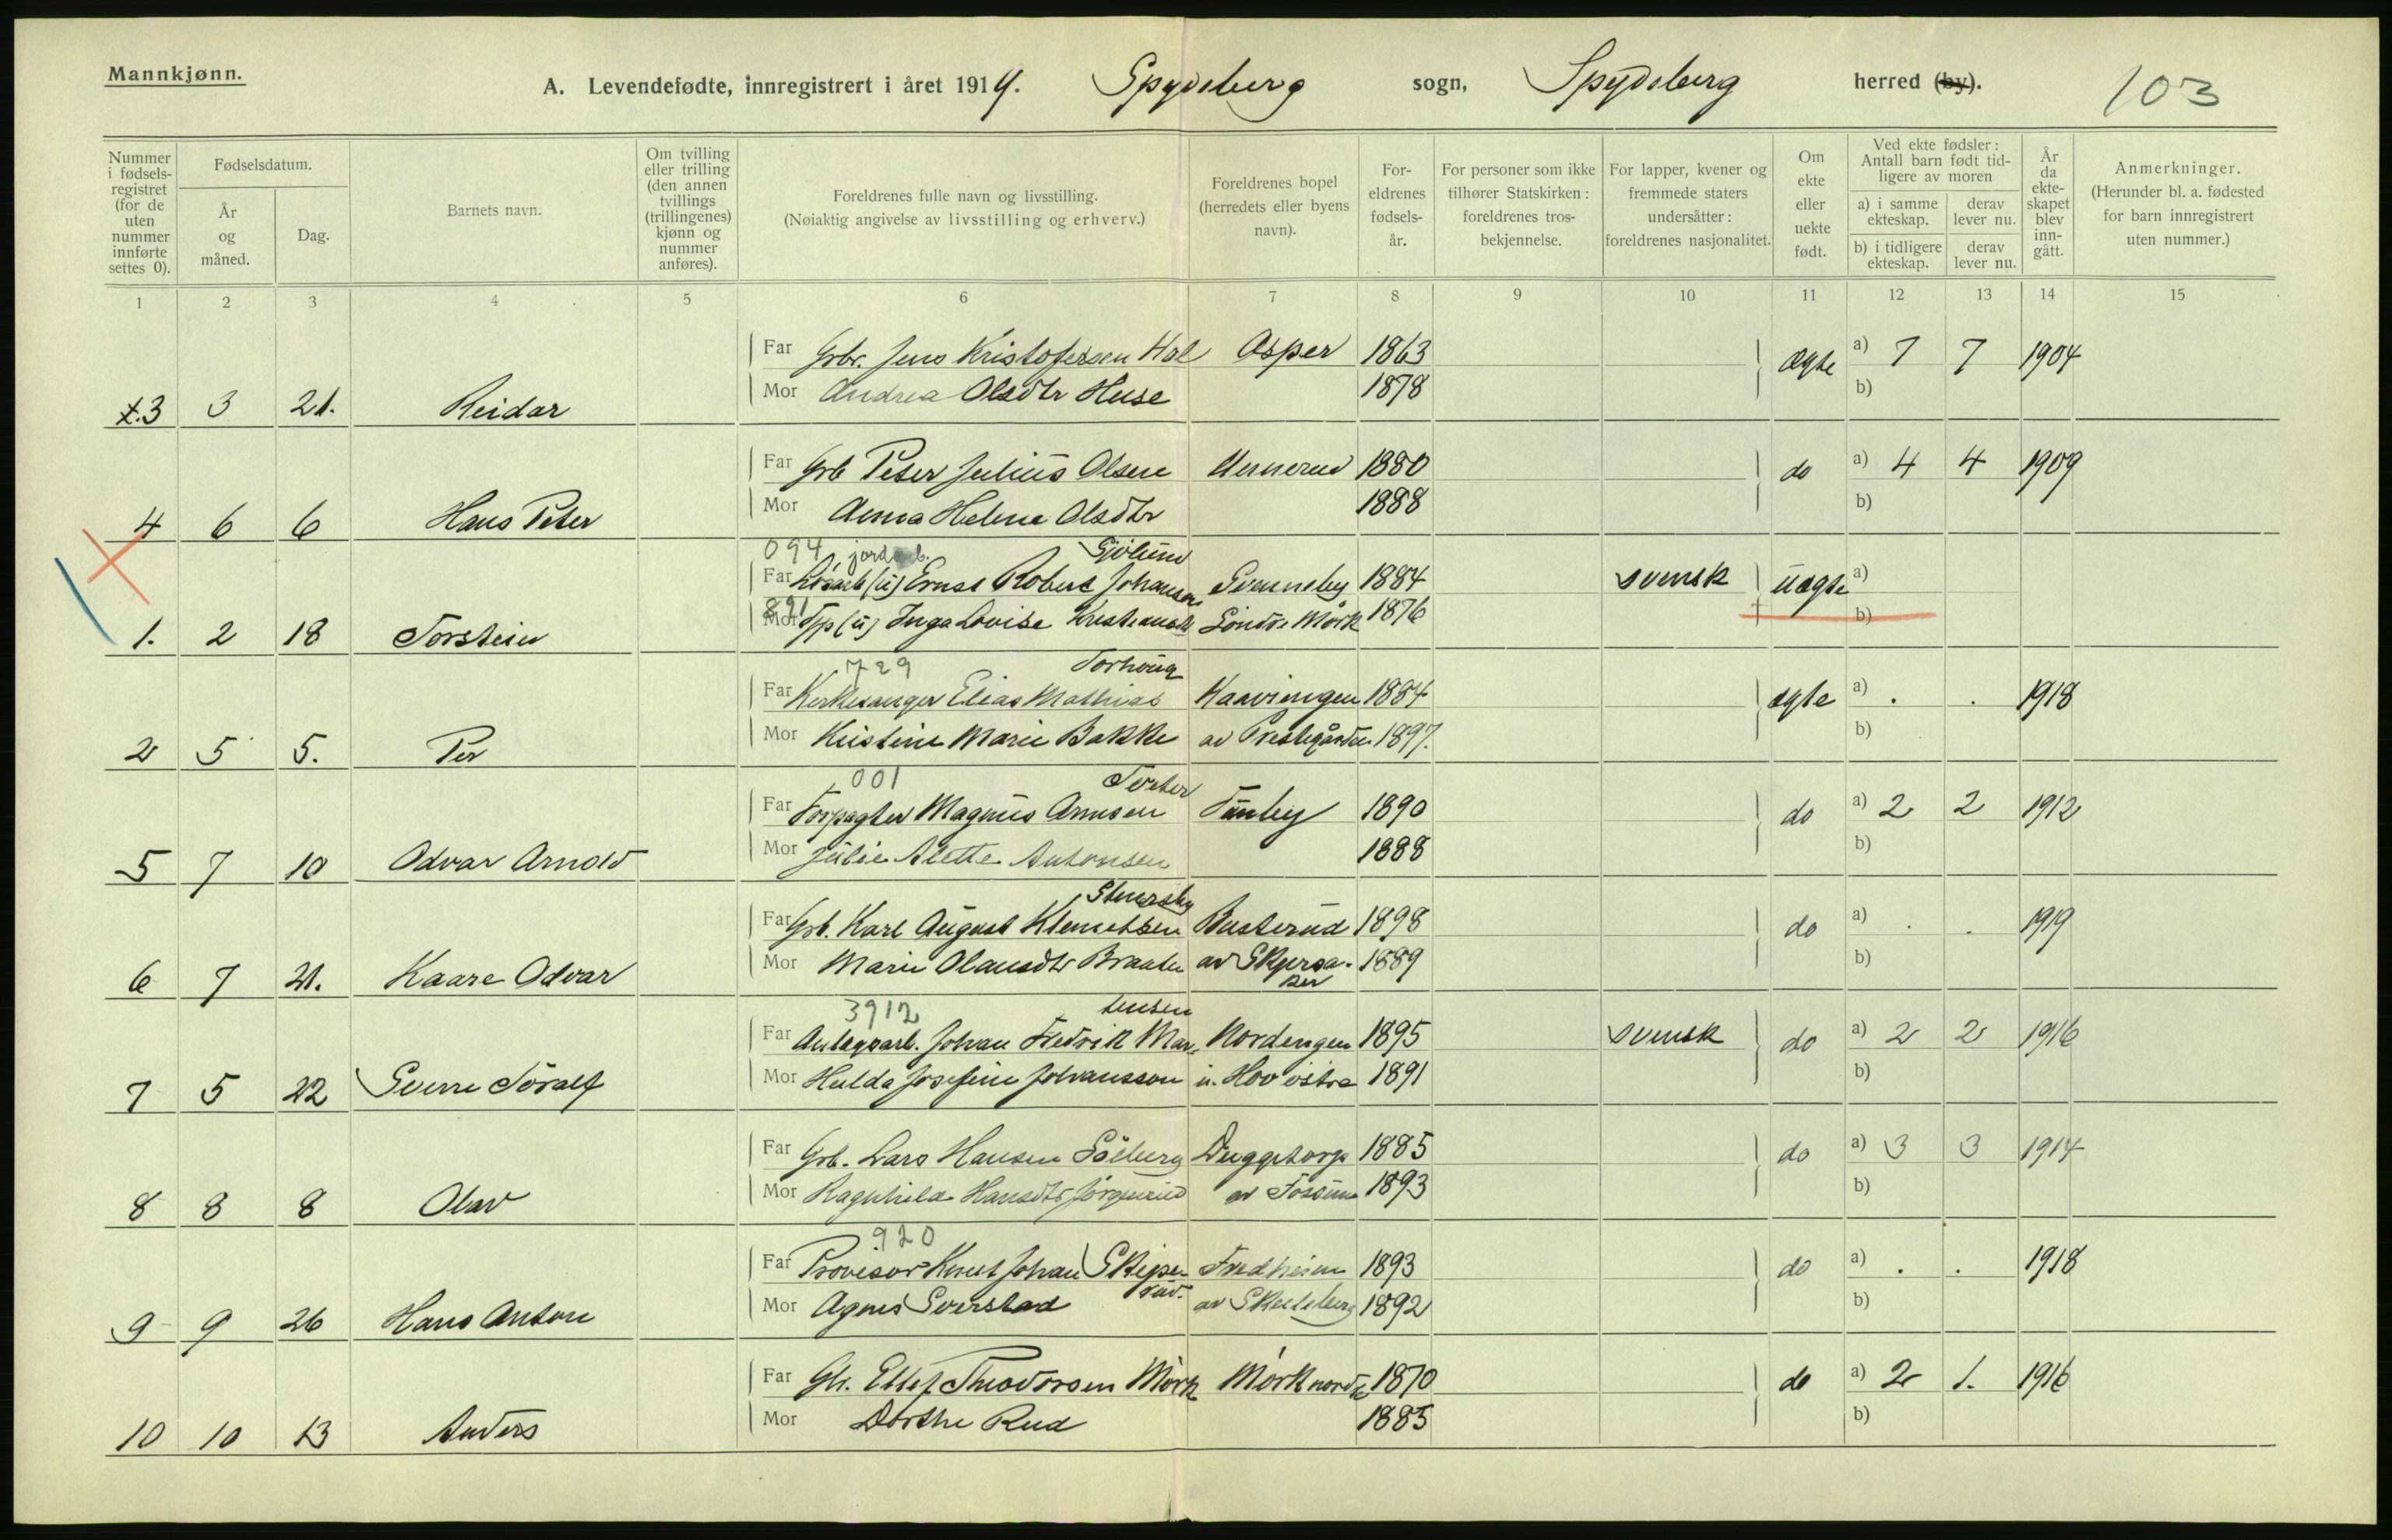 Mannkjønn.
A. Levendefødte, innregistrert i året 1919. Spydeberg sogn, Spydeberg herred (by). 103
Nummer i fødselsregistret (for de uten nummer innførte settes 0).
Fødselsdatum.
År og måned.
Dag.
Barnets navn.
Om tvilling eller trilling (den annen tvillings (trillingenes) kjønn og nummer anføres).
Foreldrenes fulle navn og livsstilling.
(Nøiaktig angivelse av livsstilling og erhverv.)
Foreldrenes bopel (herredets eller byens navn).
Foreldrenes fødselsår.
For personer som ikke tilhører Statskirken: foreldrenes trosbekjennelse.
For lapper, kvener og fremmede staters undersåtter: foreldrenes nasjonalitet.
Om ekte eller uekte født.
Ved ekte fødsler: Antall barn født tidligere av moren
a) i samme ekteskap.
derav lever nu.
b) i tidligere ekteskap.
derav lever nu.
År da ekteskapet blev inngått.
Anmerkninger.
(Herunder bl. a. fødested for barn innregistrert uten nummer.)
1 2 3 4 5 6 7 8 9 10 11 12 13 14 15
Far Grbr. Jens Kristofersen Hol Asper 1863 ægte a) 7 7 1904
Mor Andrea Olsdtr Huse 1878 b)
3 3 21. Reidar
Far Grb Peter Julius Olsen 1880 do a) 4 4 1909
Mor Anna Helene Olsdtr 1888 b)
4 6 6 Hans Peter
094 jordarb. Sjölund
Far Løsarb (u) Ernst Robert Johansen Svenneby 1884 svensk uægte a)
891
Mor Tjp (u) Inga Lovise Kristiansdtr Söndre Mörk 1876 b)
1. 2 18 Torstein
729 Torhoug
Far Kirkesanger Elias Mathias Kaavringen 1884 ægte a) . . 1918
Mor Kristine Marie Bakke av Prestegården 1897. b)
2 5 5. Per
001 Torter
Far Forpagter Magnus Arnesen Tünby 1890 do a) 2 2 1912
Mor Julie Alette Antonsen 1888 b)
5 7 10 Odvar Arnold
Stenersby
Far Grb. Karl August Klemetsen Busterud 1898 do a) . . 1919
Mor Marie Olausdtr Braaten av Skjersaker 1889 b)
6 7 21. Kaare Odvar
3912 tensen
Far Anlægsarb. Johan Fredrik Mar- Nordengen 1895 svensk do a) 2 2 1916
Mor Hulda Josefine Johansson u. Hov östre 1891 b)
7 5 22 Sverre Toralf
Far Grb. Lars Hansen Solberg Duggetorp 1885 do a) 3 3 1914
Mor Ragnhild Hansdtr Jörgenrud av Fossum 1893 b)
8 8 8 Olav
920
Far Provisor Knut Johan Skipen Fredheim 1893 do a) . . 1918
rud.
Mor Agnes Sverstad av Skuleberg 1892 b)
9 9 26 Hans Anton
Far Gbr. Ellef Theodorsen Mörk Mörk nordre 1870 do a) 2 1. 1916
Mor Dorthe Rud 1885 b)
10 10 13 Anders